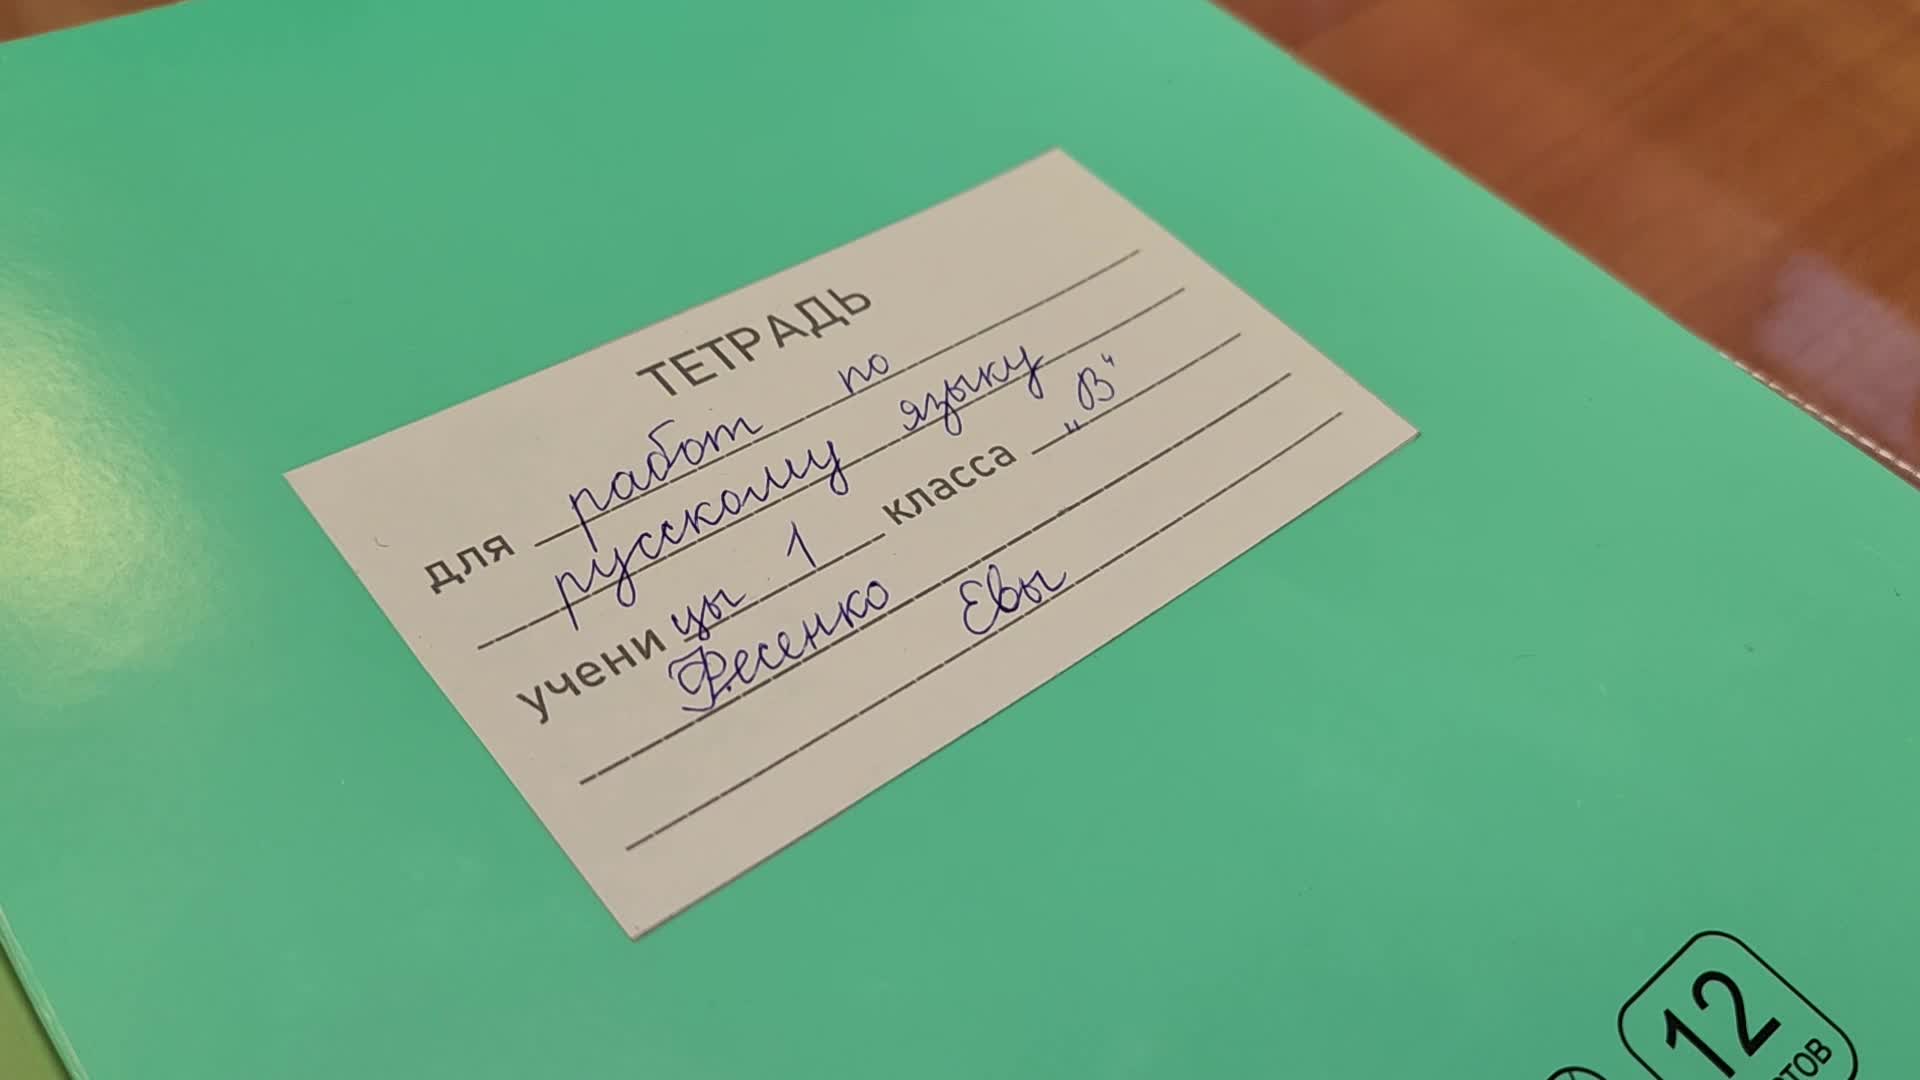 ТЕТРАДЬ
для работ по
русскому языку
учени цы 1 класса „В“
Фесенко
Евы
12